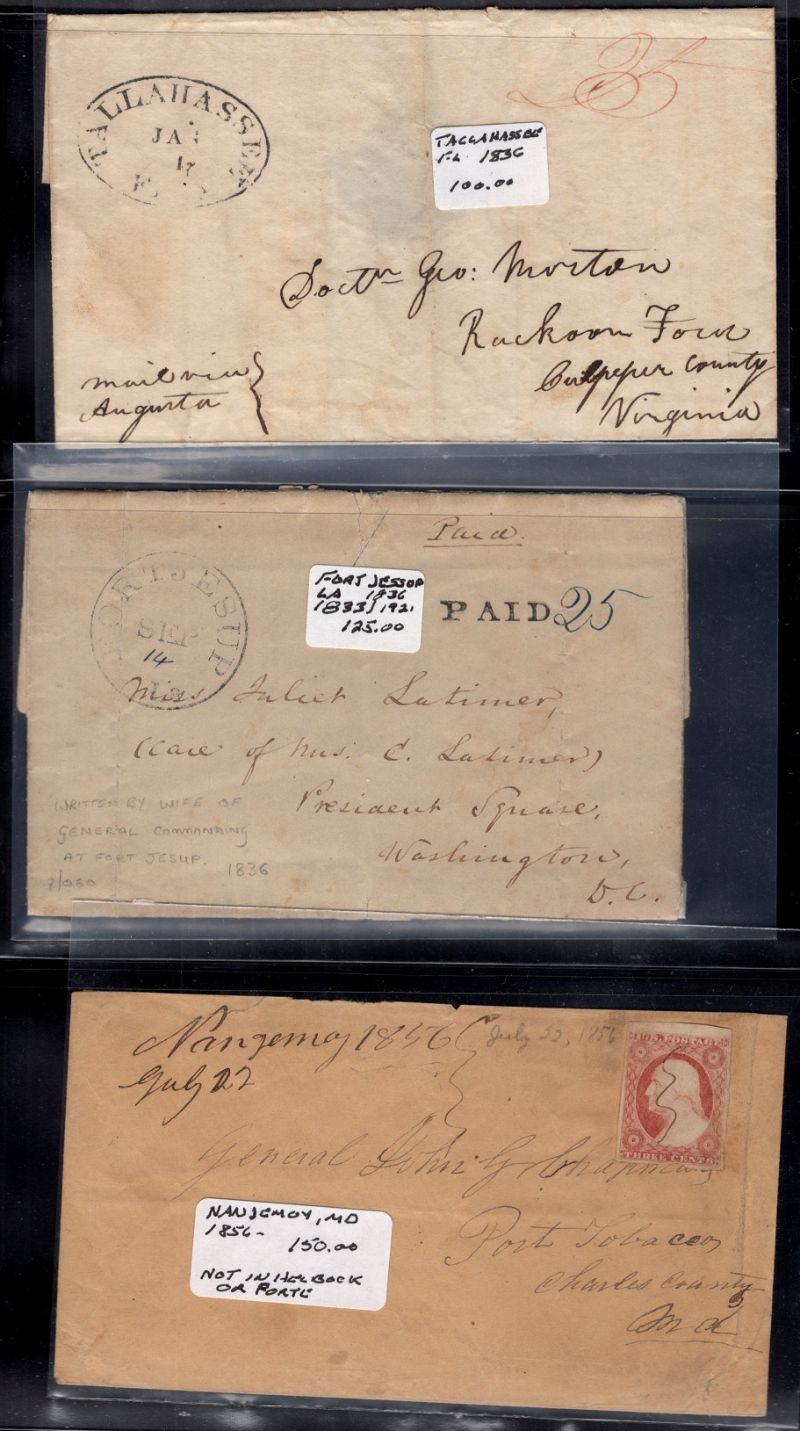 TALLAHASSEE
JAN
17
25
TALLAHASSEE
FL 1836
100.00
Doctr Geo: Morton
Rackoon Ford
Culpeper County
Virginia
mail via
Augusta
Paid.
FORT JESUP
SEP
14
La
FORT JESSUP
LA 1836
1833/1921
125.00
PAID 25
Miss Juliet Latimer,
(Care of Mrs. C. Latimer)
President Square,
Washington,
D.C.
WRITTEN BY WIFE OF
GENERAL COMMANDING
AT FORT JESUP.
1836
Nangemoy 1856
July 22
July 22, 1856
U.S. POSTAGE
THREE CENTS
General John G Chapman
Port Tobacco
Charles County
Md
NANJEMOY, MD
1856- 150.00
NOT IN HELBOCK
OR PORTE